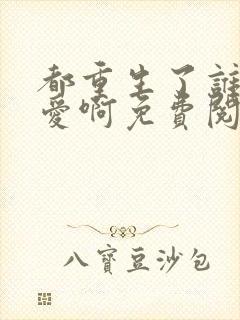 都重生了誰
愛啊免費閱
八寶豆沙包